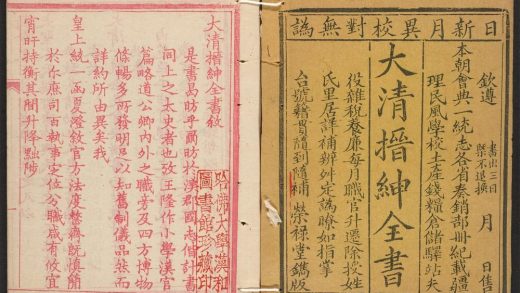 日新月異校對無譌
書出三日
槩不退換
月 日售
欽遵
本朝會典一統志各省奏銷部冊紀載疆
理民風學校土產錢糧倉儲驛站夫
大清搢紳全書
役雜稅養廉每月職官升遷除授姓
氏里居詳補辦舛定譌瞭如指掌
台號籍貫隨到隨補 榮祿堂鐫版
大清搢紳全書敘
是書曷昉乎爾昉於漢郡國志偕計書
同上之太史者也攷王隆作小學漢官
篇略道公卿內外之職旁及四方博物
條暢多所發明足以知舊制儀品然而
詳約所由異矣我
皇上統一函夏澄敘官方法度整齊既慎簡
於庶司百執事定位分職咸有攸宜
宵旰持衡其間升降黜陟
哈佛大學漢和
圖書館珍藏印